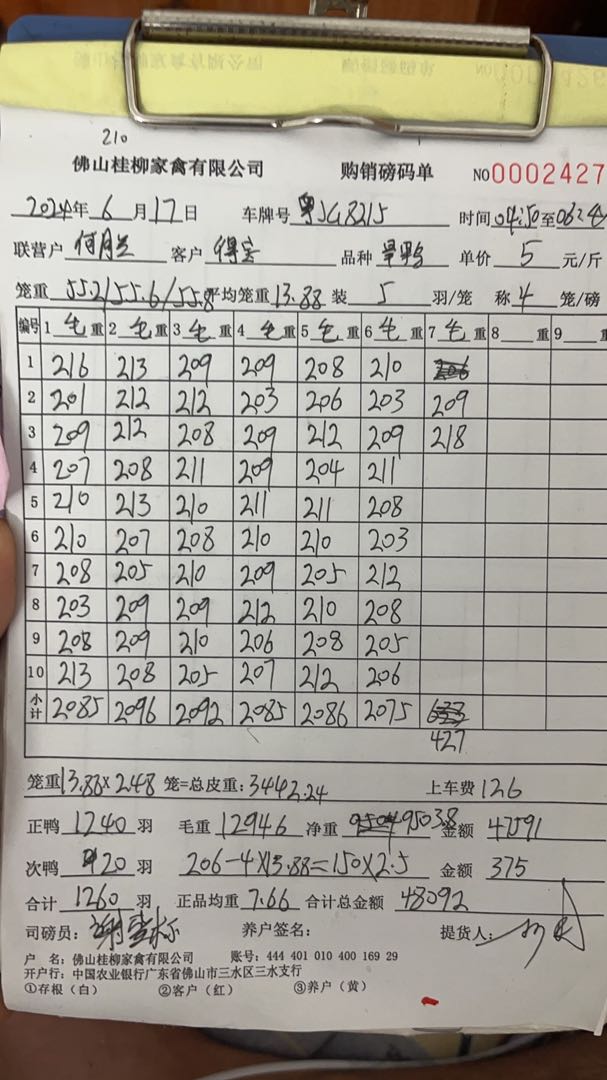 210
佛山桂柳家禽有限公司 购销磅码单 NO0002427
2024年6月17日 车牌号 粤JG8215 时间04:50至06:
联营户 何月兰 客户 得宝 品种 旱鸭 单价 5 元/斤
笼重 55.2/55.6/55.8 平均笼重13.88 装 5 羽/笼 称 4 笼/磅
编号 1毛重 2毛重 3毛重 4毛重 5毛重 6毛重 7毛重 8 重 9 重
1 216 213 209 209 208 210 206
2 201 212 212 203 206 203 209
3 209 212 208 209 212 209 218
4 207 208 211 209 204 211
5 210 213 210 211 211 208
6 210 207 208 210 210 203
7 208 205 210 209 205 212
8 203 209 209 212 210 208
9 208 209 210 206 208 205
10 213 208 205 207 212 206
小计 2085 2096 2092 2085 2086 2075 633
427
笼重13.88×248 笼=总皮重:3442.24 上车费126
正鸭 1240 羽 毛重 12946 净重 9504 9503.8 金额 47591
次鸭 20 羽 206-4×13.88=150×2.5 金额 375
合计 1260 羽 正品均重 7.66 合计总金额 48092
司磅员: 养户签名: 提货人:
户 名: 佛山桂柳家禽有限公司 账号: 444 401 010 400 169 29
开户行: 中国农业银行广东省佛山市三水区三水支行
①存根(白) ②客户(红) ③养户(黄)